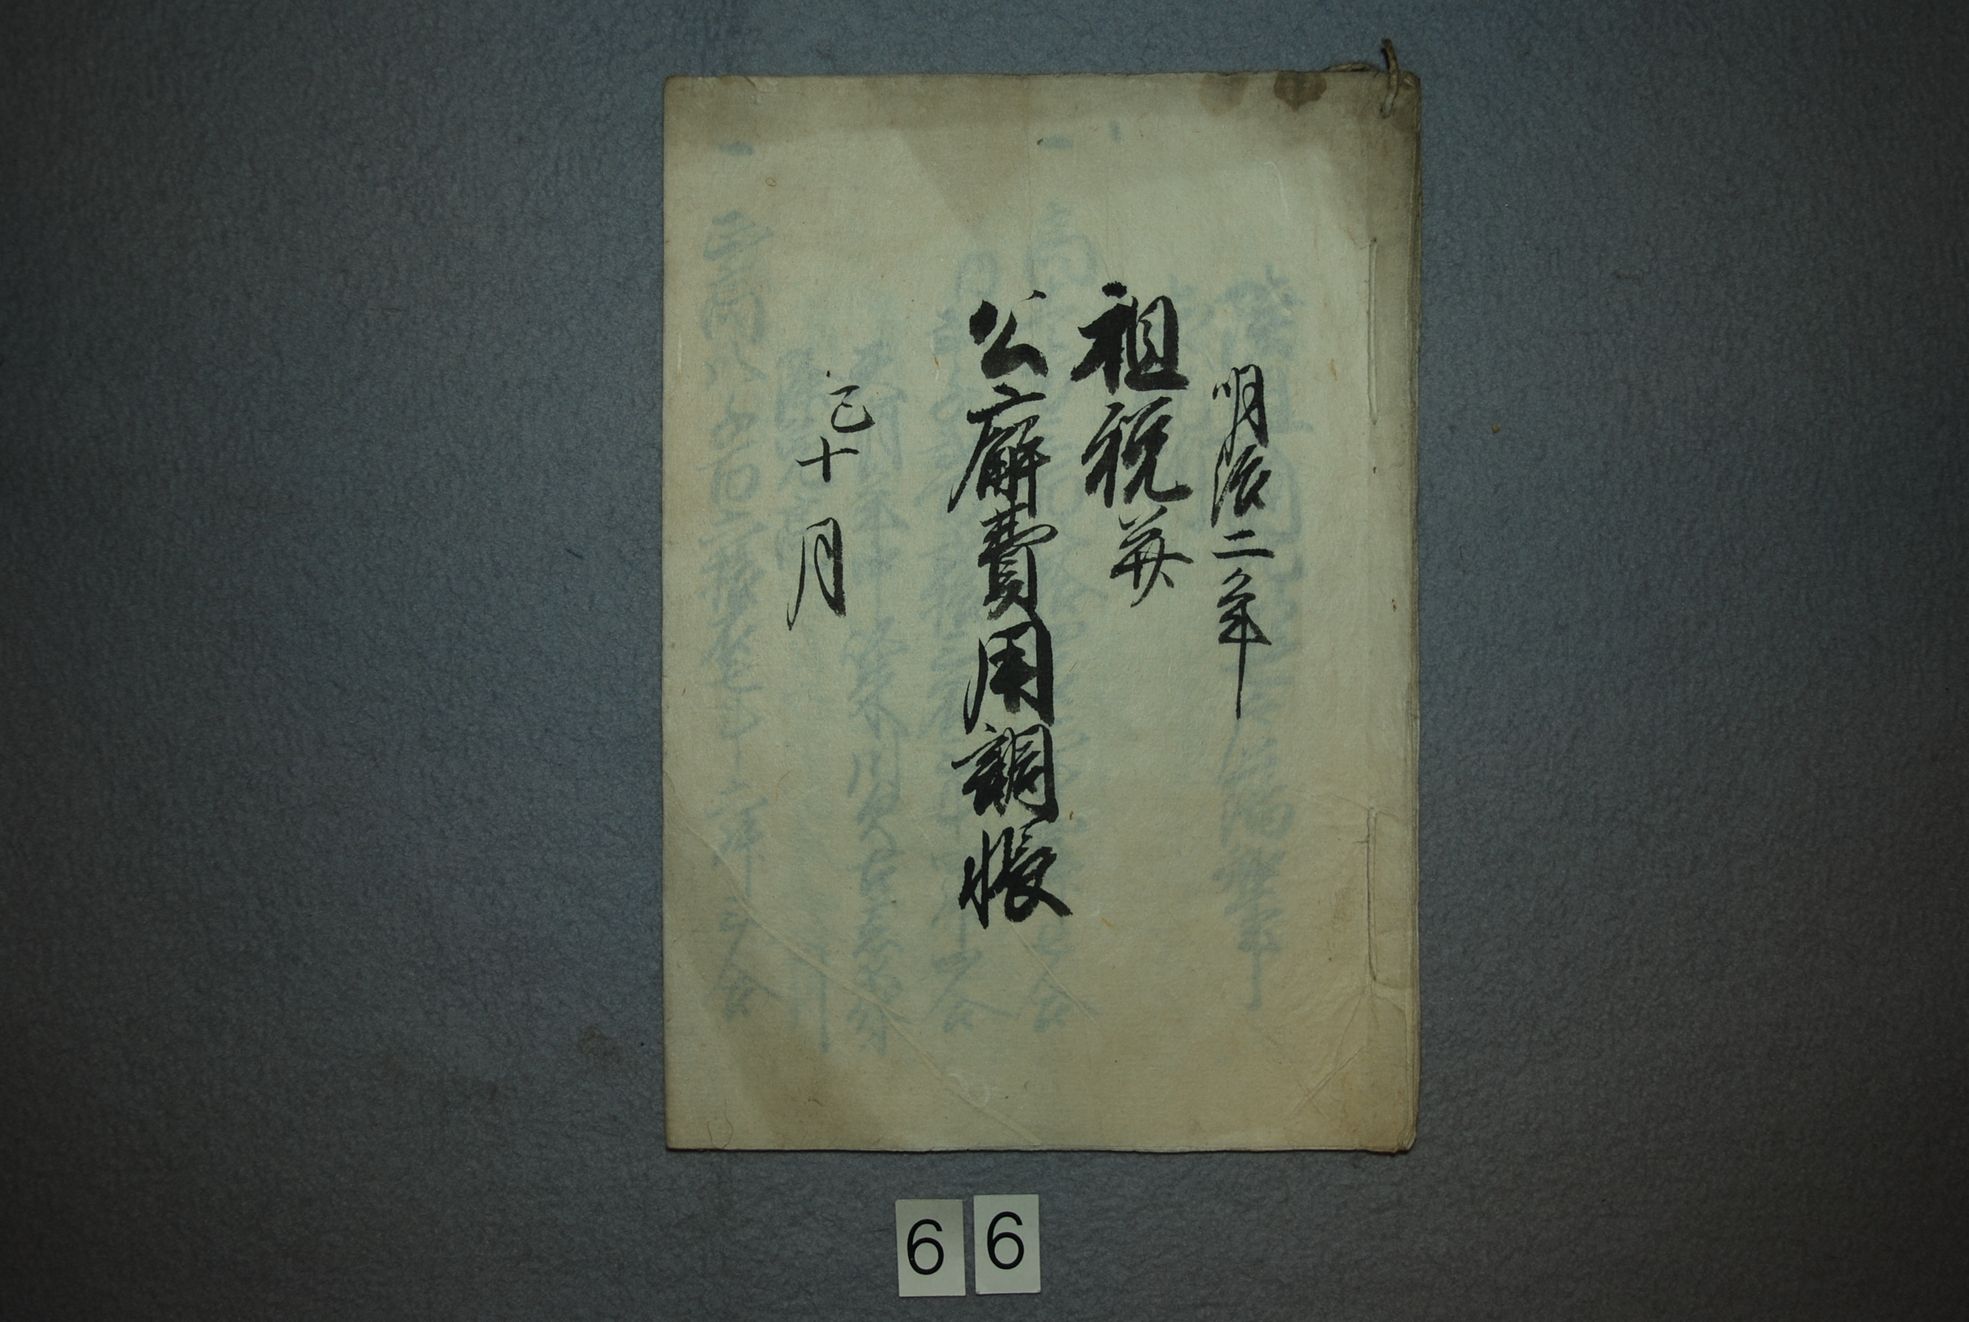 明治二年
祖税并
公廨費用調帳
巳十月
66